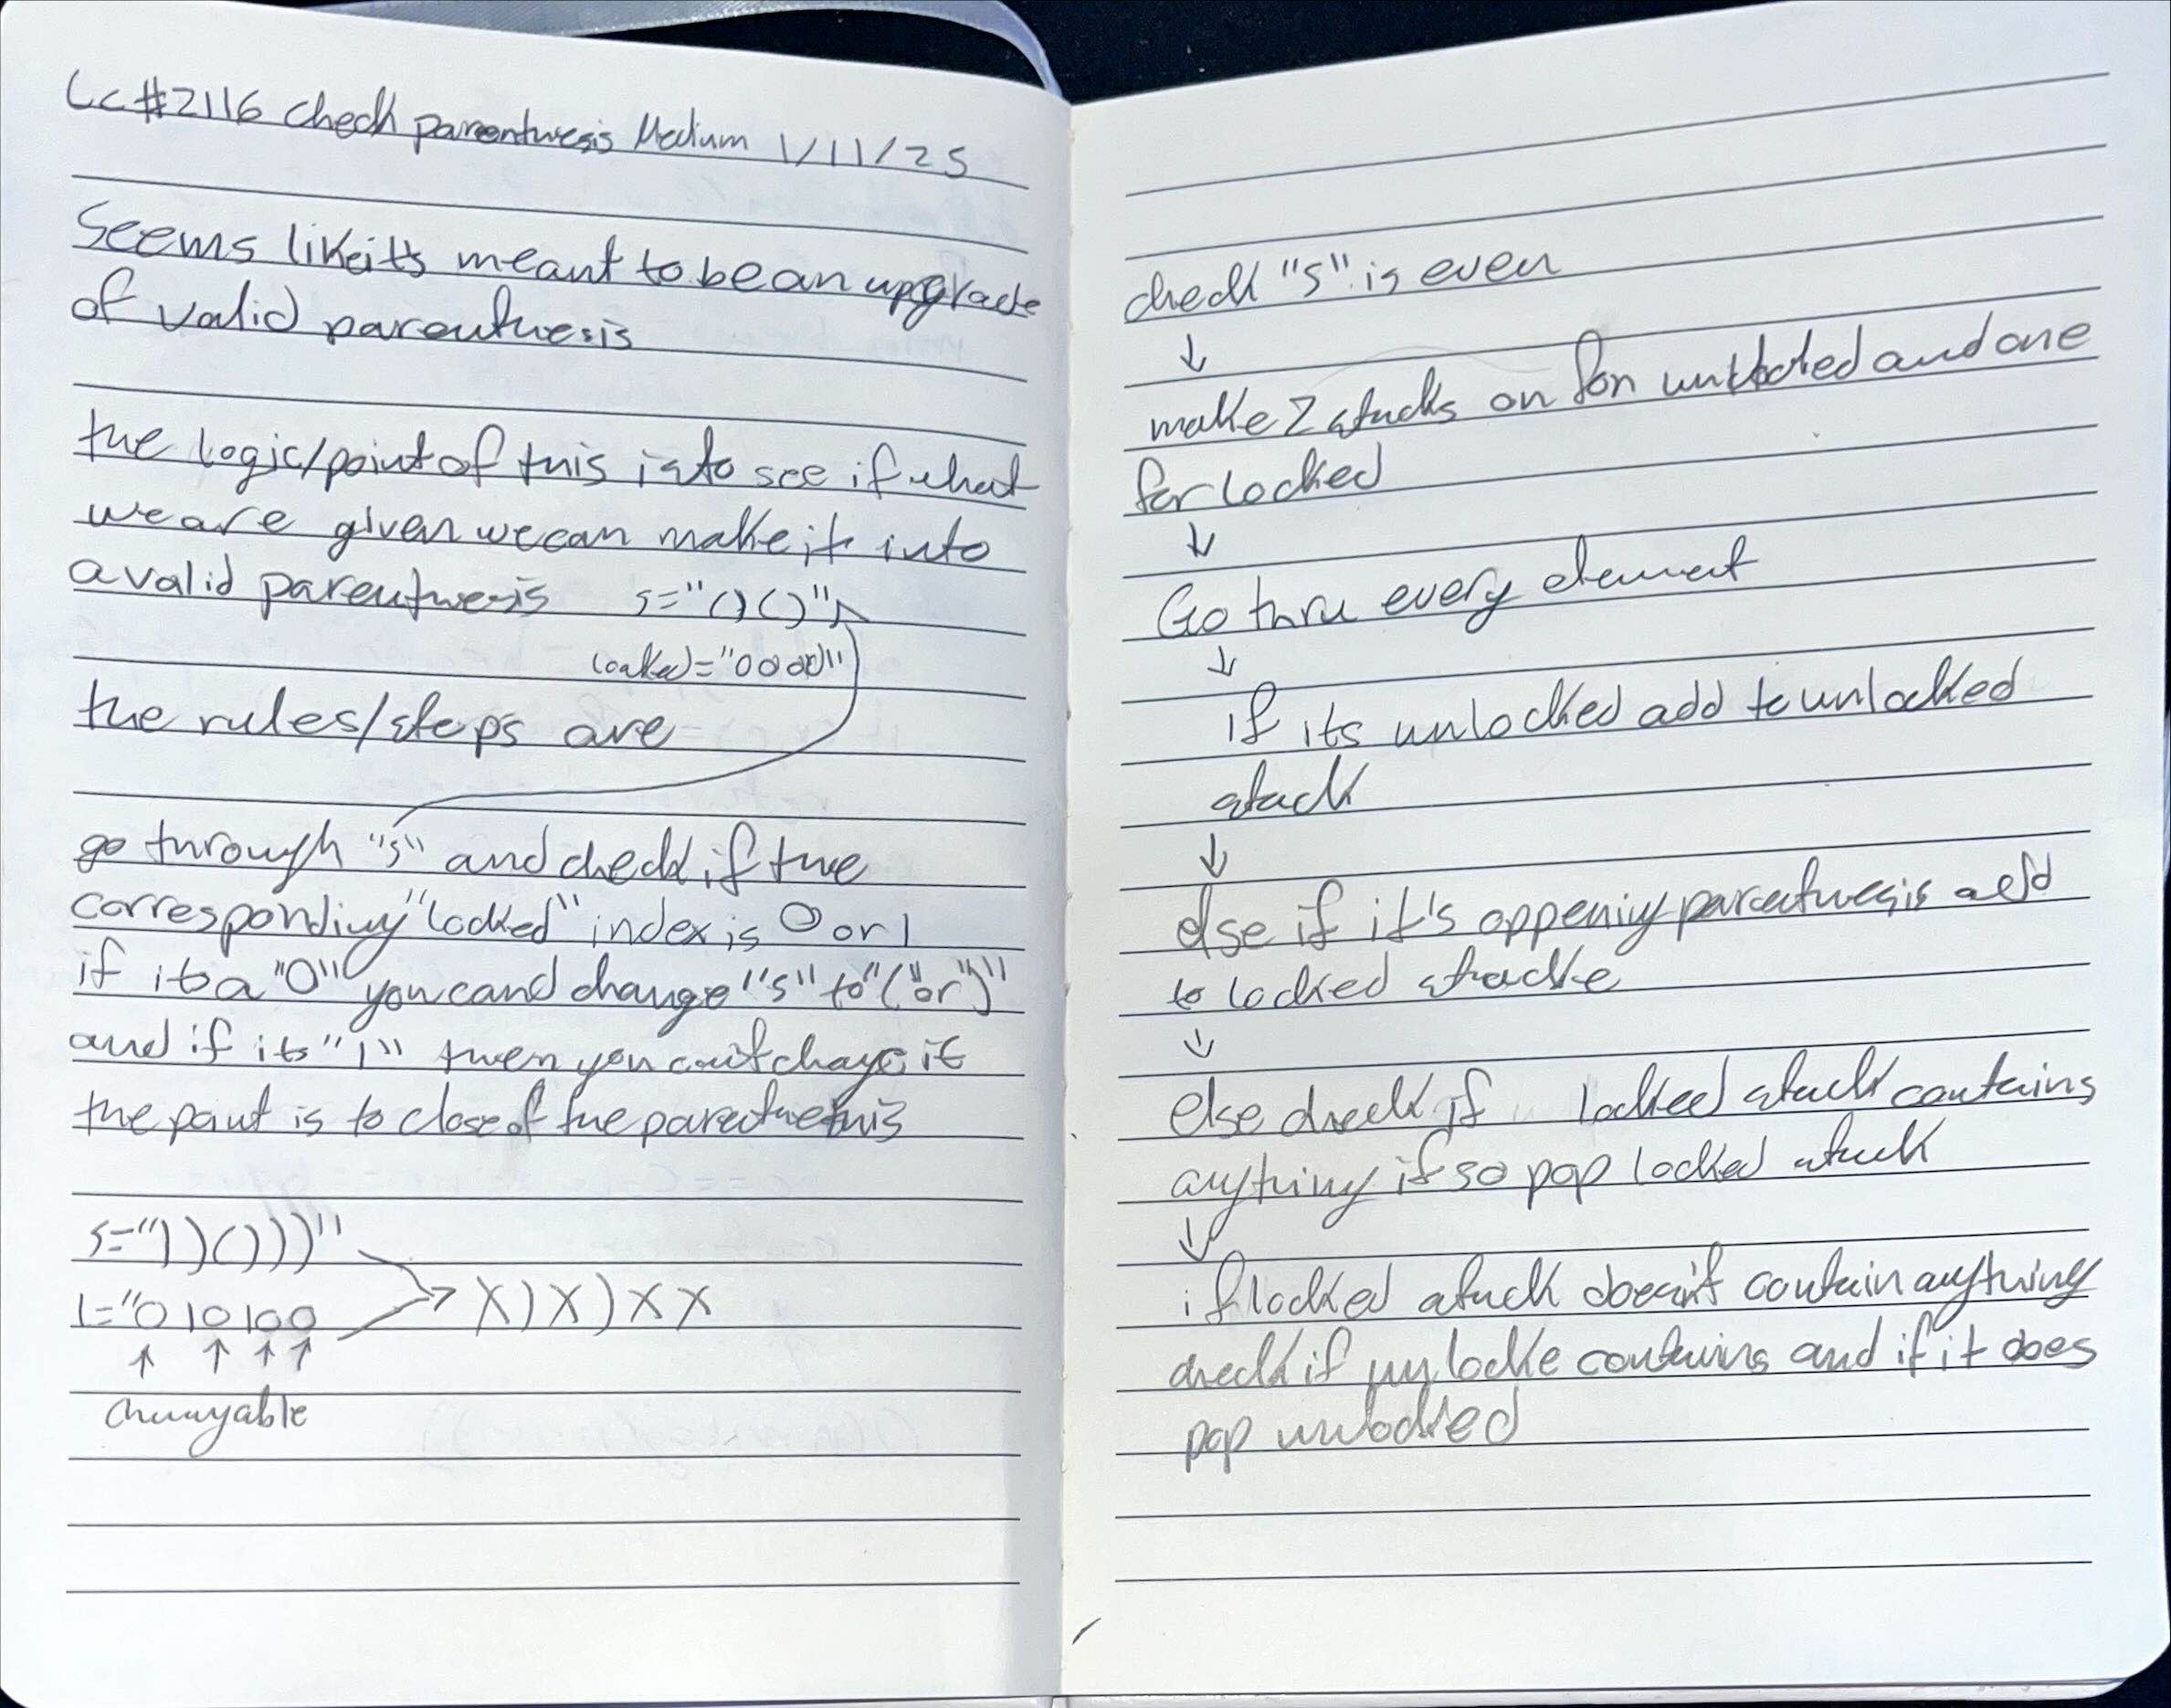 Lc#2116 check parenthesis Medium 1/11/25
Seems like its meant to be an upgrade
of valid parenthesis
the logic/point of this is to see if what
we are given we can make it into
a valid parenthesis s="()()"
locked="0000"
the rules/steps are
go through "s" and check if the
corresponding "locked" index is 0 or 1
if its a "0" you cand change "s" to "(" or ")"
and if its "1" then you can't change it
the point is to close of the parenthesis
s="))()))"
l="010100
X)X)XX
changable
check "s" is even
↓
make 2 stacks on for unlocked and one
for locked
↓
Go thru every element
↓
if its unlocked add to unlocked
stack
↓
else if it's oppening parenthesis add
to locked stacke
↓
else check if locked stack contains
anything if so pop locked stack
↓
if locked stack doesn't contain anything
check if unlocke contains and if it does
pop unlocked